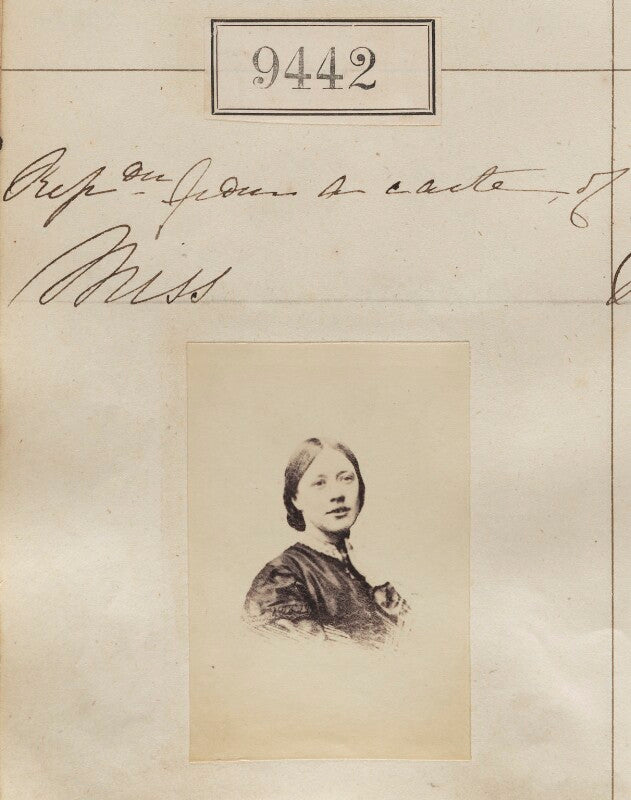 9442
Repdn from a carte of
Miss